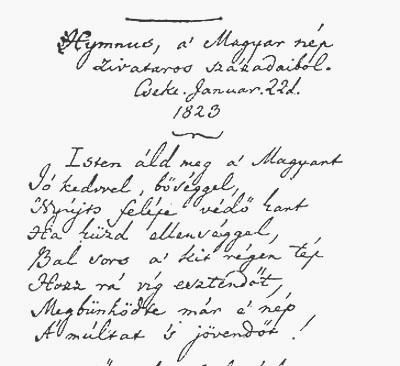 Hymnus, a' Magyar nép
zivataros századaiból.
Cseke. Januar. 22d.
1823
Isten áld meg a' Magyart
Jó kedvvel, bőséggel,
Nyújts feléje védő kart
Ha küzd ellenséggel,
Bal sors a' kit régen tép
Hozz rá víg esztendőt,
Megbünhödte már e' nép
A' múltat 's jövendőt!